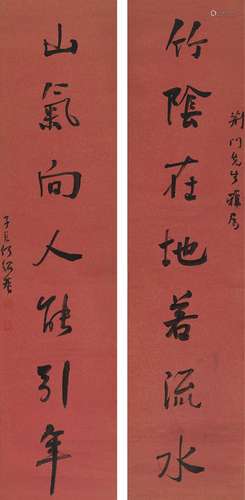 荆门先生雅属
竹陰在地若流水
山氣向人能引年
子貞何紹基